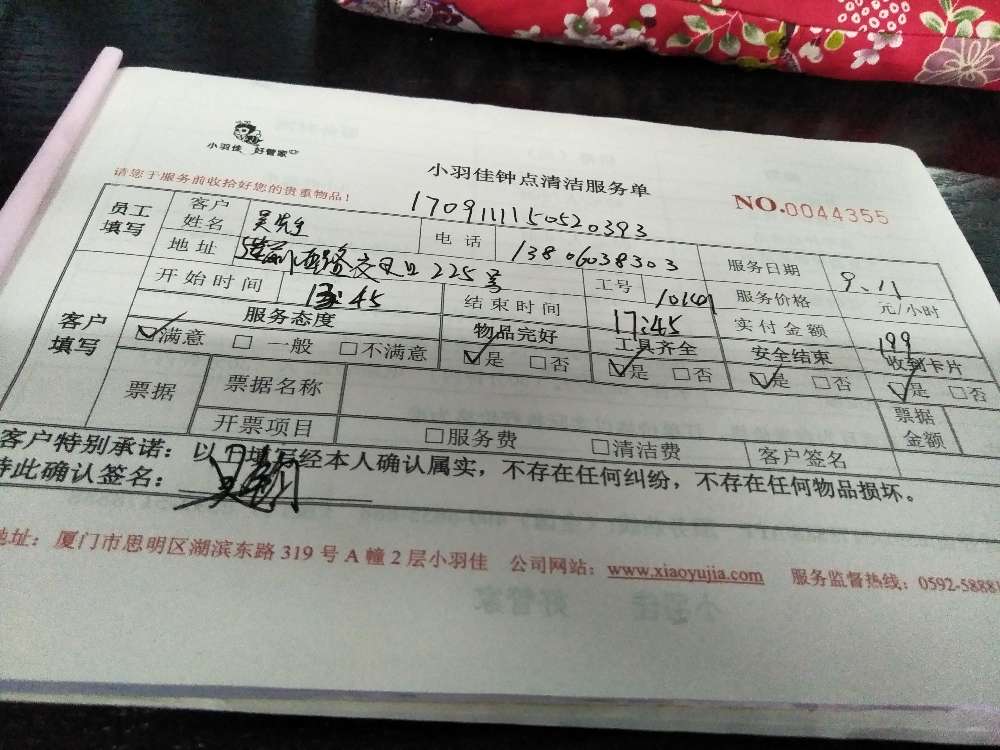 小羽佳 好管家
小羽佳钟点清洁服务单
请您于服务前收拾好您的贵重物品！
NO.0044355
17091111505520393
员工填写 客户姓名 吴先生 电话 13806038303 服务日期 9.11
地址 路交叉口225号 工号 10141 服务价格 元/小时
客户填写 开始时间 :45 结束时间 17:45 实付金额 199
服务态度 物品完好 工具齐全 安全结束 收到卡片
☑满意 □一般 □不满意 ☑是 □否 ☑是 □否 ☑是 □否 ☑是 □否
票据 票据名称 票据金额
开票项目 □服务费 □清洁费 客户签名
客户特别承诺：以上填写经本人确认属实，不存在任何纠纷，不存在任何物品损坏。
特此确认签名：
地址：厦门市思明区湖滨东路319号A幢2层小羽佳 公司网站：www.xiaoyujia.com 服务监督热线：0592-58881